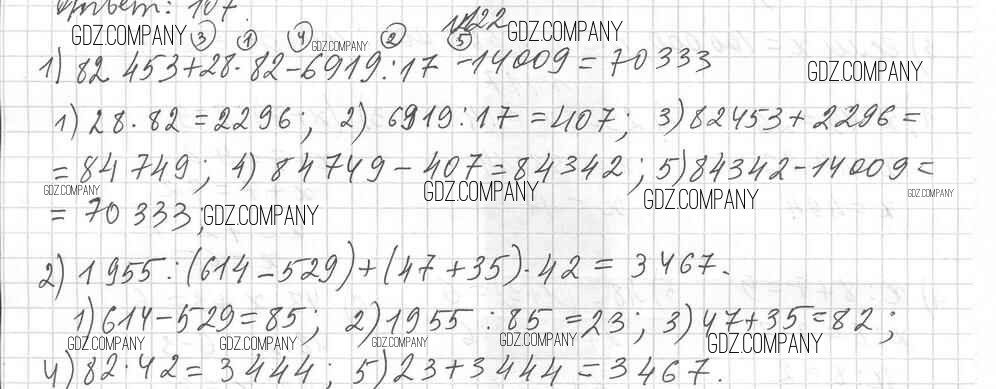 Ответ: 107.
№122
GDZ.COMPANY 3 1 4 GDZ.COMPANY 2 5 GDZ.COMPANY
1) 82 453+28·82-6919:17-14009=70333 GDZ.COMPANY
1) 28·82=2296; 2) 6919:17=407; 3) 82453+2296=
=84749; 4) 84749-407=84342; 5) 84342-14009=
GDZ.COMPANY GDZ.COMPANY GDZ.COMPANY GDZ.COMPANY
=70333; GDZ.COMPANY
2) 1955:(614-529)+(47+35)·42=3467.
1) 614-529=85; 2) 1955:85=23; 3) 47+35=82;
GDZ.COMPANY GDZ.COMPANY GDZ.COMPANY GDZ.COMPANY GDZ.COMPANY
4) 82·42=3444; 5) 23+3444=3467.